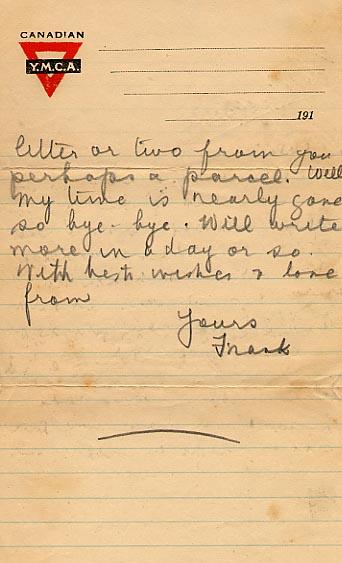 CANADIAN
Y.M.C.A.
191
letter or two from you
perhaps a parcel. Well
my time is nearly gone
so bye-bye. Will write
more in a day or so.
With best wishes & love
from
Yours
Frank